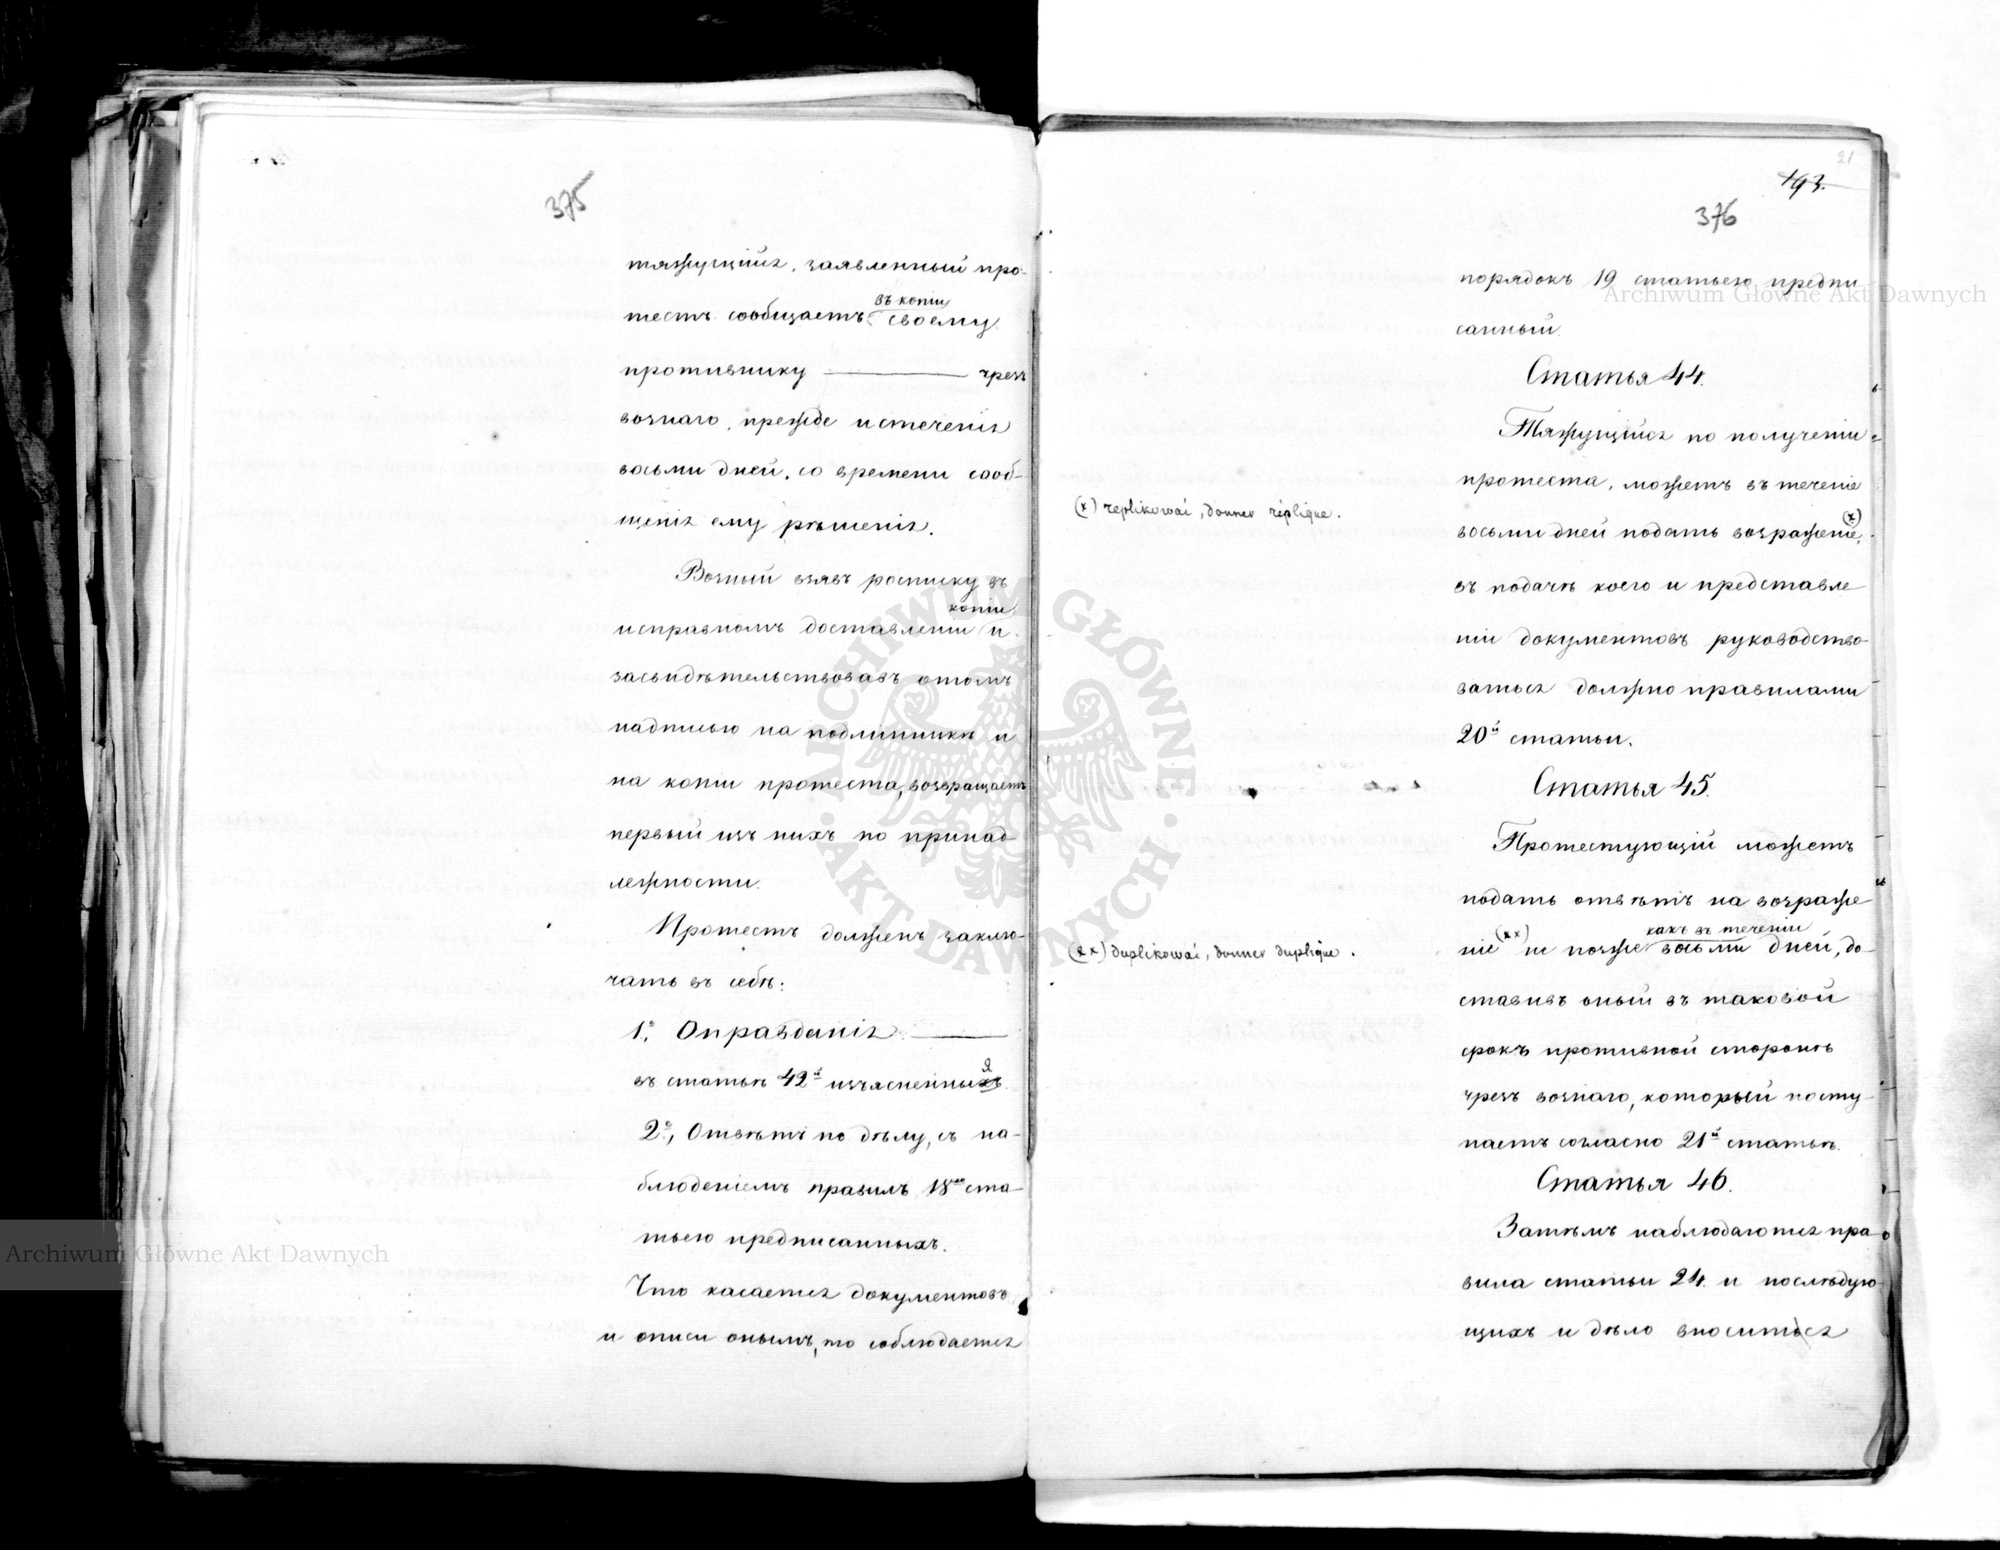 375
тяжущійся, заявленный про-
тестъ сообщаетъ въ копіи своему
противнику ——— чрезъ
вознаго, прежде истеченія
восьми дней, со времени сооб-
щенія ему рѣшенія.
Возный взявъ росписку въ
исправномъ доставленіи копіи и
засвидѣтельствовавъ отомъ
надписью на подлинникѣ и
на копіи протеста, возвращаетъ
первый изъ нихъ по принад
лежности.
Протестъ долженъ заклю-
чать въ себѣ:
1е, Оправданія ———
въ статьѣ 42й изъясненныя
2е, Отвѣтъ по дѣлу, съ на-
блюденіемъ правилъ 18ою ста-
тьею предписанныхъ.
Что касается документовъ
и описи онымъ, то соблюдается
21
193.
376
порядокъ 19 статьею предпи
санный.
Статья 44.
Тяжущійся по полученіи
протеста, можетъ въ теченіе
восьми дней подать возраженіе, (x)
(x) replikować, donner réplique.
въ подачѣ коего и представле
ніи документовъ руководство-
ваться должно правилами
20й статьи.
Статья 45.
Протестующій можетъ
подать отвѣтъ на возраже
ніе (xx) не позже какъ въ теченіи восьми дней, до-
(xx) duplikować, donner duplique.
ставивъ оный въ таковой
срокъ противной сторонѣ
чрезъ вознаго, который посту-
паетъ согласно 21й статьѣ.
Статья 46.
Затѣмъ наблюдаются пра-
вила статьи 24. и послѣдую-
щихъ и дѣло вносится
Archiwum Główne Akt Dawnych
Archiwum Główne Akt Dawnych
ARCHIWUM GŁÓWNE AKT DAWNYCH